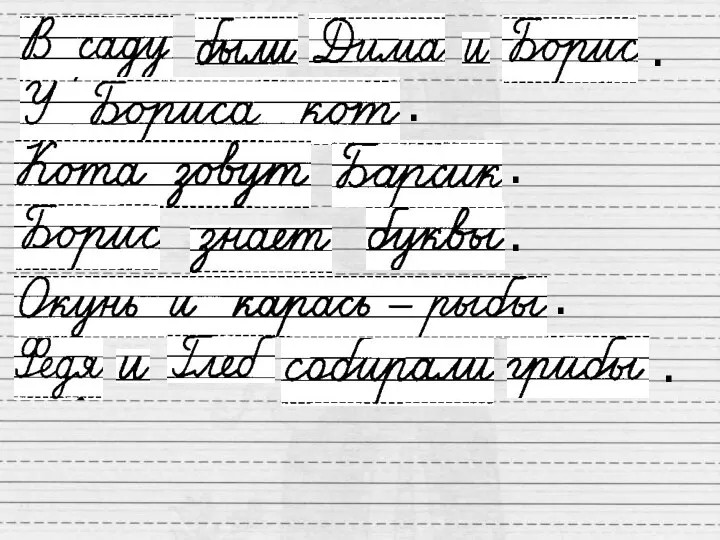 В саду были Дима и Борис.
У Бориса кот.
Кота зовут Барсик.
Борис знает буквы.
Окунь и карась – рыбы.
Федя и Глеб собирали грибы.